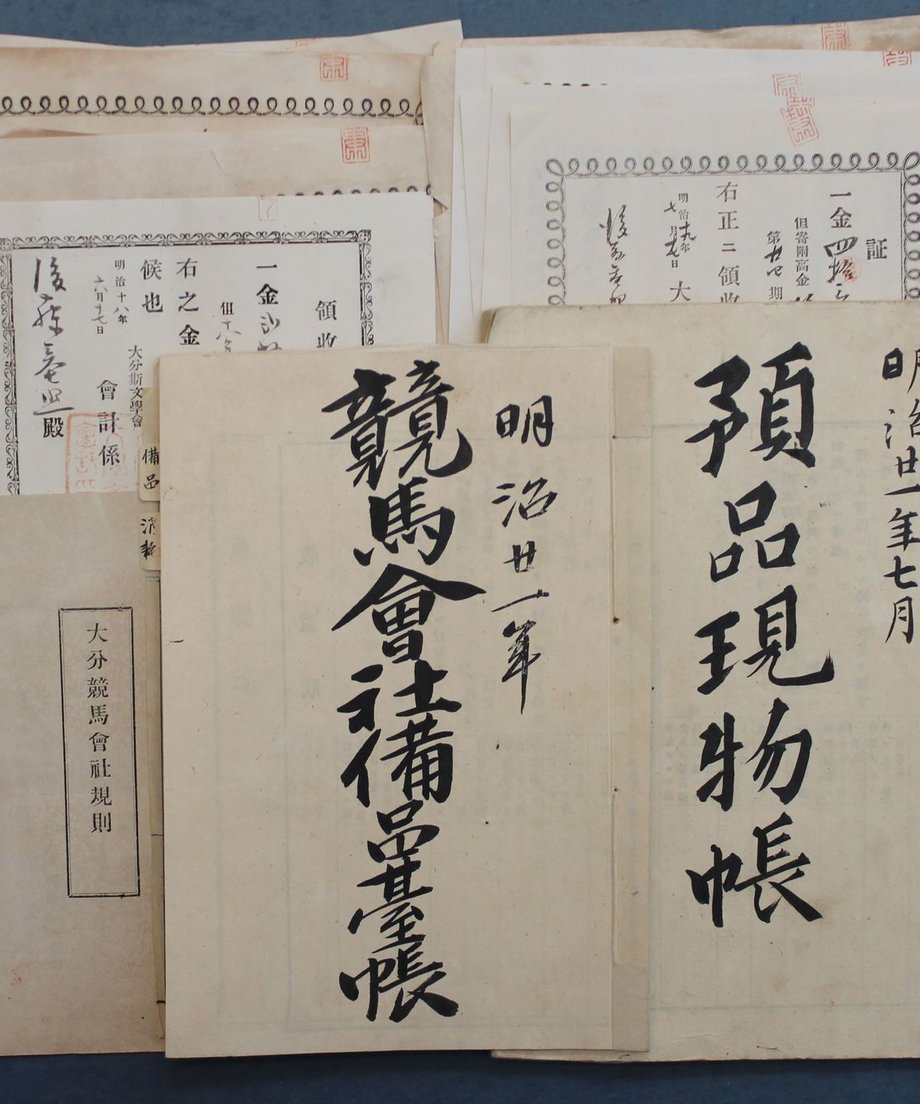 証
一金四拾
但寄附高金
第廿四期
右正ニ領收
明治十九年
七月
大
領收
一金
但
右之金
候也
明治十八年
六月十七日
大分斯文學會
會計係
殿
備品
明治廿一年七月
預品現物帳
明治廿一年
競馬會社備品臺帳
大分競馬會社規則